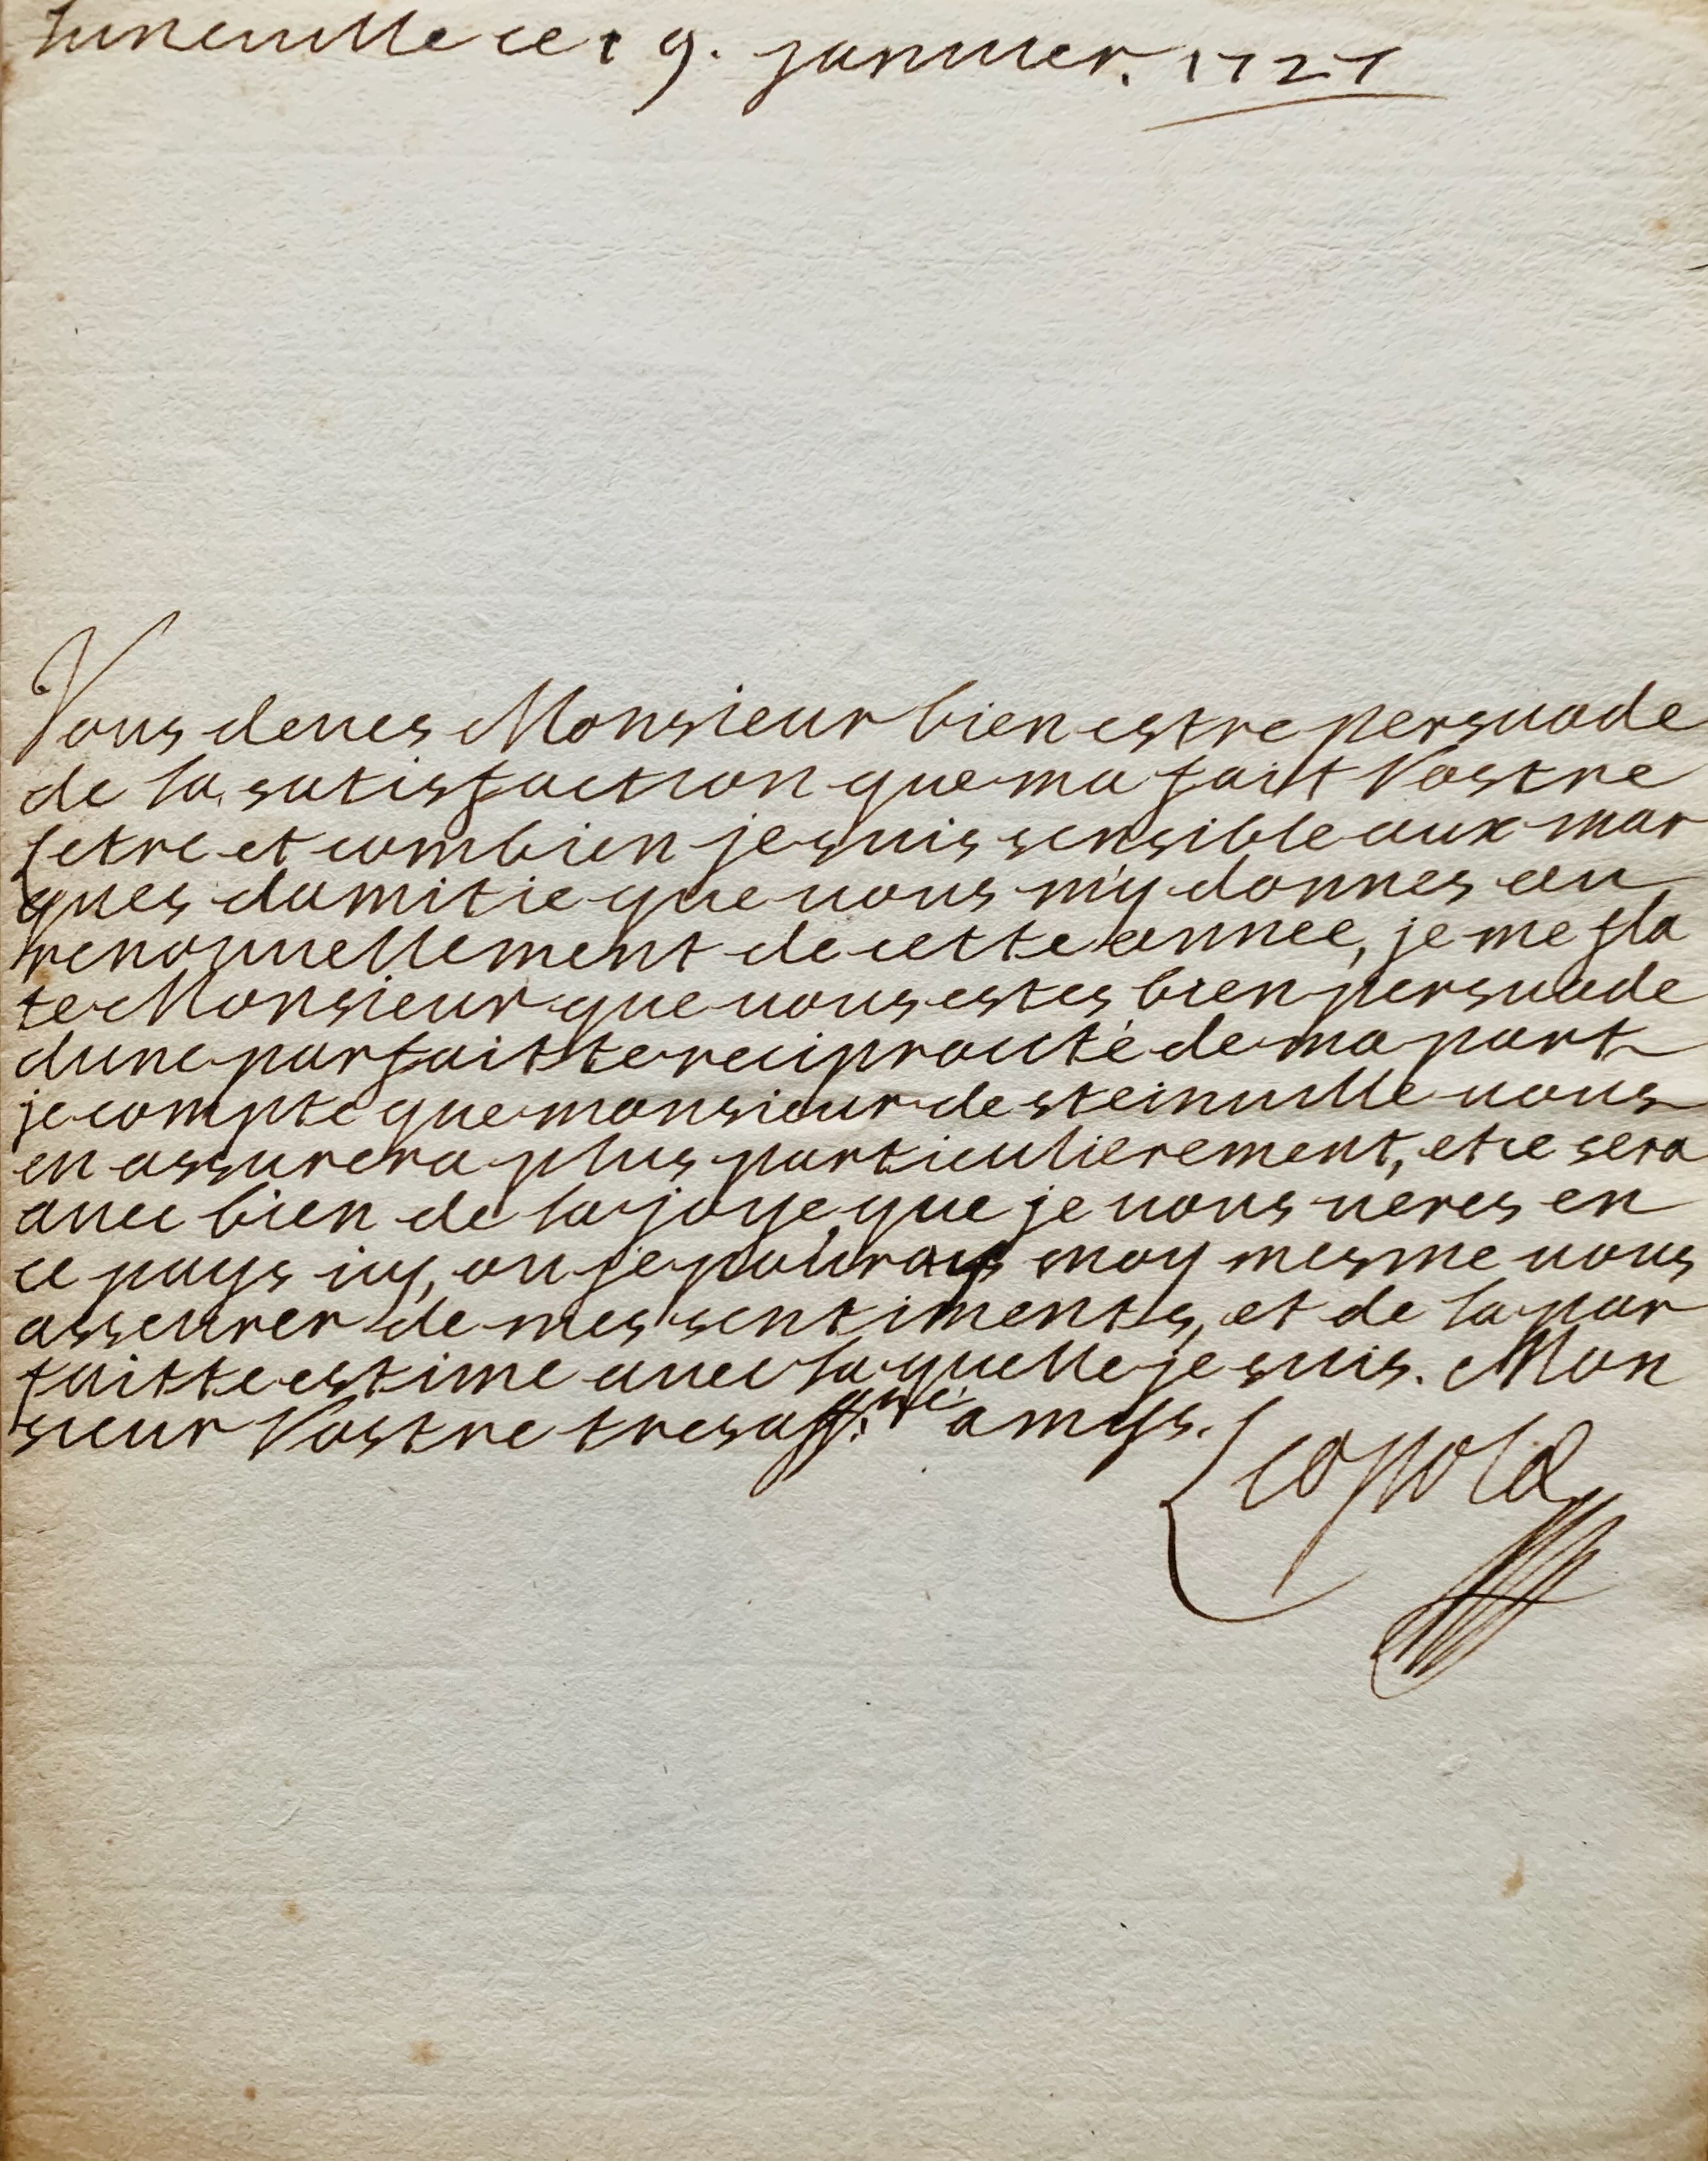 Luneuille ce 19. januier. 1727
Vous deues Monsieur bien estre persuade
de la satisfaction que ma fait Vostre
letre et combien je suis sensible aux mar
ques damitie que uous m'y donnes au
renouuellement de cette annee, je me fla
te Monsieur que uous estes bien persuade
dune parfaitte reciprocité de ma part
je compte que monsieur de steinuille uous
en assurera plus particulierement, et ce sera
auec bien de la joye que je uous ueres en
ce pays icy, ou je pouray moy mesme uous
asseurer de mes sentiments, et de la par
faitte estime auec laquelle je suis. Mon
sieur Vostre tres aff.né amys.
Leopold